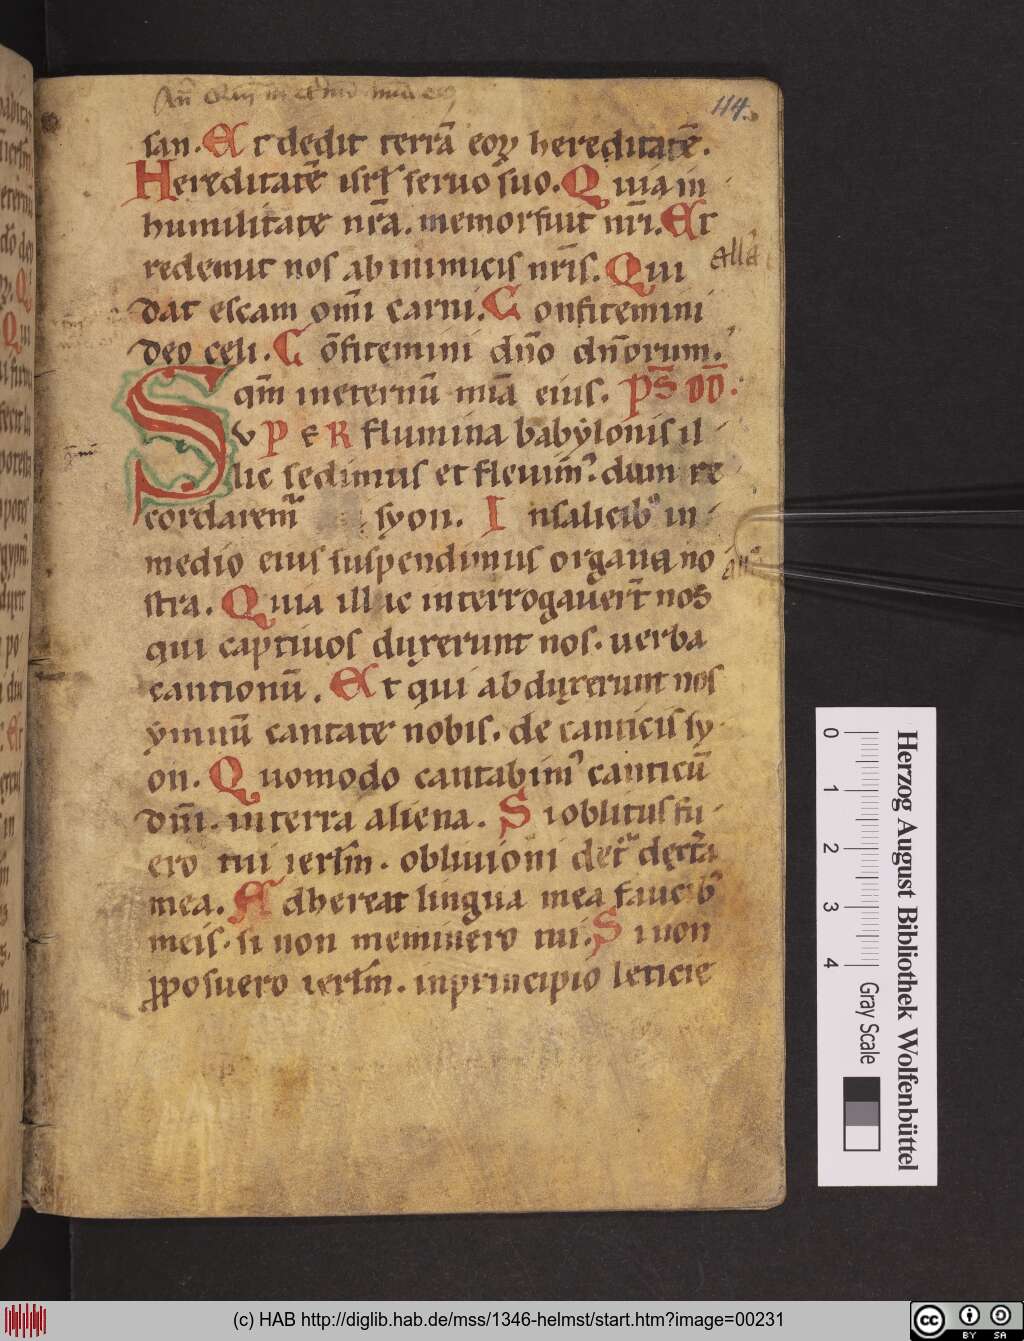 114.
san. Et dedit terrā eoꝝ hereditatē.
Hereditatē isrł seruo suo. Quia in
humilitate nr̄a. memor fuit nr̄i. Et
redemit nos ab inimicis nr̄is. Qui
allā
dat escam om̄i carni. Confitemini
deo celi. Cōfitemini dn̄o dn̄orum.
qm̄ in eternū mīa eius. Ps̄ DD̄.
SVPER flumina babẏlonis il
lic sedimus et fleuim᷒. dum re
cordarem̄ syon. In salicib᷒ in
medio eius suspendimus organa no
stra. Quia illic interrogauer̄t nos
qui captiuos duxerunt nos. uerba
cantionū. Et qui abduxerunt nos
ẏmnū cantate nobis. de canticis sy
on. Quomodo cantabim᷒ canticū
dn̄i. in terra aliena. Si oblitus fu
ero tui ierłm. obliuioni det᷒ dext̄a
mea. Adhereat lingua mea faucib᷒
meis. si non meminero tui. Si non
ꝓposuero ierłm. in principio leticie
0 1 2 3 4
Gray Scale
Herzog August Bibliothek Wolfenbüttel
(c) HAB http://diglib.hab.de/mss/1346-helmst/start.htm?image=00231
cc BY SA